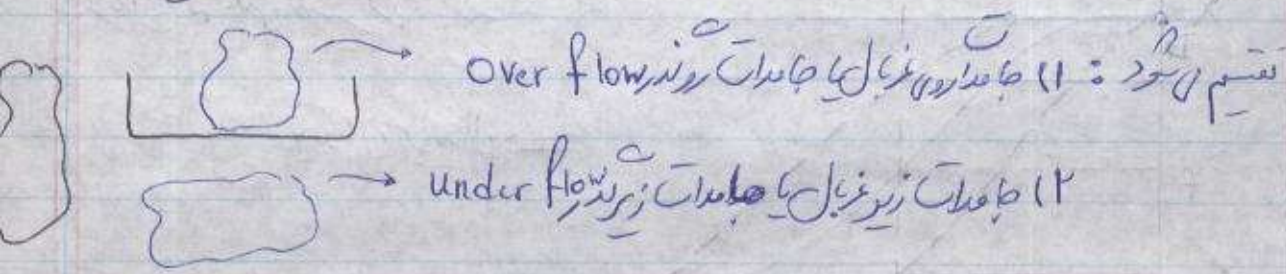 تقسیم می شود : ۱) جامدات روی غربال یا جامدات روندر Over flow
۲) جامدات زیر غربال یا جامدات زیرندر Under flow